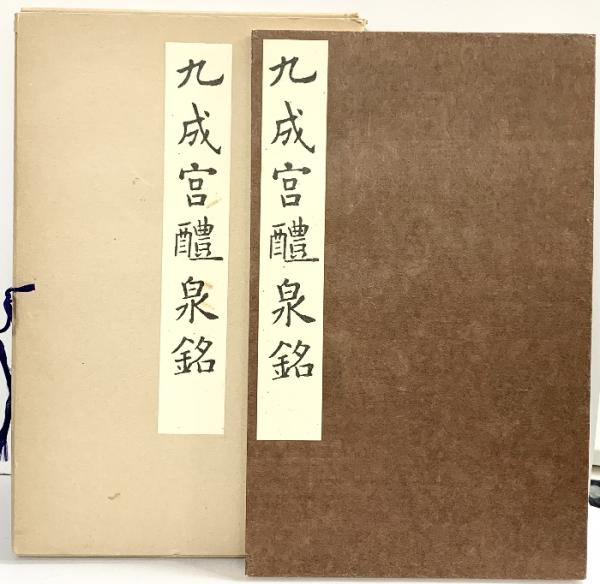 九成宮醴泉銘
九成宮醴泉銘